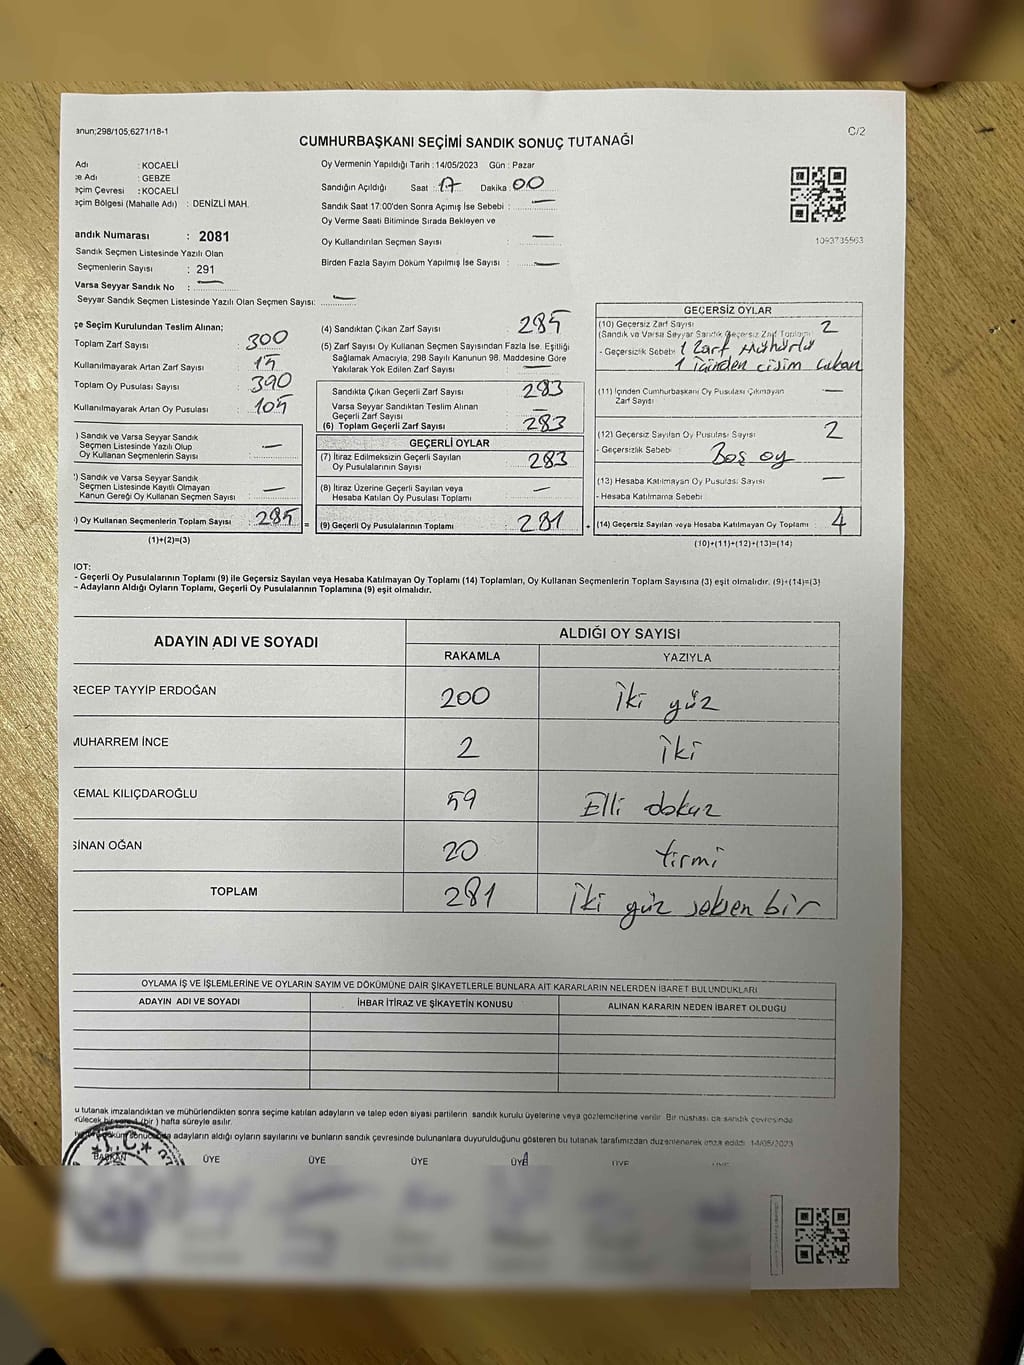 anun;298/105,6271/18-1
C/2
CUMHURBAŞKANI SEÇİMİ SANDIK SONUÇ TUTANAĞI
Adı : KOCAELİ
çe Adı : GEBZE
eçim Çevresi : KOCAELİ
eçim Bölgesi (Mahalle Adı) : DENİZLİ MAH.
andık Numarası : 2081
Sandık Seçmen Listesinde Yazılı Olan
Seçmenlerin Sayısı : 291
Varsa Seyyar Sandık No : —
Seyyar Sandık Seçmen Listesinde Yazılı Olan Seçmen Sayısı: —
Oy Vermenin Yapıldığı Tarih : 14/05/2023 Gün : Pazar
Sandığın Açıldığı Saat : 17 Dakika : 00
Sandık Saat 17:00'den Sonra Açımış İse Sebebi : —
Oy Verme Saati Bitiminde Sırada Bekleyen ve
Oy Kullandırılan Seçmen Sayısı : —
Birden Fazla Sayım Döküm Yapılmış İse Sayısı : —
1093735563
çe Seçim Kurulundan Teslim Alınan;
Toplam Zarf Sayısı : 300
Kullanılmayarak Artan Zarf Sayısı : 15
Toplam Oy Pusulası Sayısı : 390
Kullanılmayarak Artan Oy Pusulası : 105
) Sandık ve Varsa Seyyar Sandık
Seçmen Listesinde Yazılı Olup
Oy Kullanan Seçmenlerin Sayısı : —
) Sandık ve Varsa Seyyar Sandık
Seçmen Listesinde Kayıtlı Olmayan
Kanun Gereği Oy Kullanan Seçmen Sayısı : —
) Oy Kullanan Seçmenlerin Toplam Sayısı : 285
(1)+(2)=(3)
(4) Sandıktan Çıkan Zarf Sayısı : 285
(5) Zarf Sayısı Oy Kullanan Seçmen Sayısından Fazla İse, Eşitliği
Sağlamak Amacıyla, 298 Sayılı Kanunun 98. Maddesine Göre
Yakılarak Yok Edilen Zarf Sayısı : —
Sandıkta Çıkan Geçerli Zarf Sayısı : 283
Varsa Seyyar Sandıktan Teslim Alınan
Geçerli Zarf Sayısı : —
(6) Toplam Geçerli Zarf Sayısı : 283
GEÇERLİ OYLAR
(7) İtiraz Edilmeksizin Geçerli Sayılan
Oy Pusulalarının Sayısı : 283
(8) İtiraz Üzerine Geçerli Sayılan veya
Hesaba Katılan Oy Pusulası Toplamı : —
= (9) Geçerli Oy Pusulalarının Toplamı : 281
GEÇERSİZ OYLAR
(10) Geçersiz Zarf Sayısı : 2
(Sandık ve Varsa Seyyar Sandık Geçersiz Zarf Toplamı)
- Geçersizlik Sebebi : 1 Zarf Mühürlü
1 içinden cisim çıkan
(11) İçinden Cumhurbaşkanı Oy Pusulası Çıkmayan
Zarf Sayısı : —
(12) Geçersiz Sayılan Oy Pusulası Sayısı : 2
- Geçersizlik Sebebi : Boş oy
(13) Hesaba Katılmayan Oy Pusulası Sayısı : —
- Hesaba Katılmama Sebebi :
+ (14) Geçersiz Sayılan veya Hesaba Katılmayan Oy Toplamı : 4
(10)+(11)+(12)+(13)=(14)
IOT:
- Geçerli Oy Pusulalarının Toplamı (9) ile Geçersiz Sayılan veya Hesaba Katılmayan Oy Toplamı (14) Toplamları, Oy Kullanan Seçmenlerin Toplam Sayısına (3) eşit olmalıdır. (9)+(14)=(3)
- Adayların Aldığı Oyların Toplamı, Geçerli Oy Pusulalarının Toplamına (9) eşit olmalıdır.
ADAYIN ADI VE SOYADI
ALDIĞI OY SAYISI
RAKAMLA YAZIYLA
RECEP TAYYİP ERDOĞAN 200 İki yüz
MUHARREM İNCE 2 İki
KEMAL KILIÇDAROĞLU 59 Elli dokuz
SİNAN OĞAN 20 Yirmi
TOPLAM 281 İki yüz seksen bir
OYLAMA İŞ VE İŞLEMLERİNE VE OYLARIN SAYIM VE DÖKÜMÜNE DAİR ŞİKAYETLERLE BUNLARA AİT KARARLARIN NELERDEN İBARET BULUNDUKLARI
ADAYIN ADI VE SOYADI İHBAR İTİRAZ VE ŞİKAYETİN KONUSU ALINAN KARARIN NEDEN İBARET OLDUĞU
u tutanak imzalandıktan ve mühürlendikten sonra seçime katılan adayların ve talep eden siyasi partilerin sandık kurulu üyelerine veya gözlemcilerine verilir. Bir nüshası da sandık çevresinde
(bir ) hafta süreyle asılır.
adayların aldığı oyların sayılarını ve bunların sandık çevresinde bulunanlara duyurulduğunu gösteren bu tutanak tarafımızdan düzenlenerek imza edildi. 14/05/2023
T.C.
BAŞKAN ÜYE ÜYE ÜYE ÜYE ÜYE ÜYE